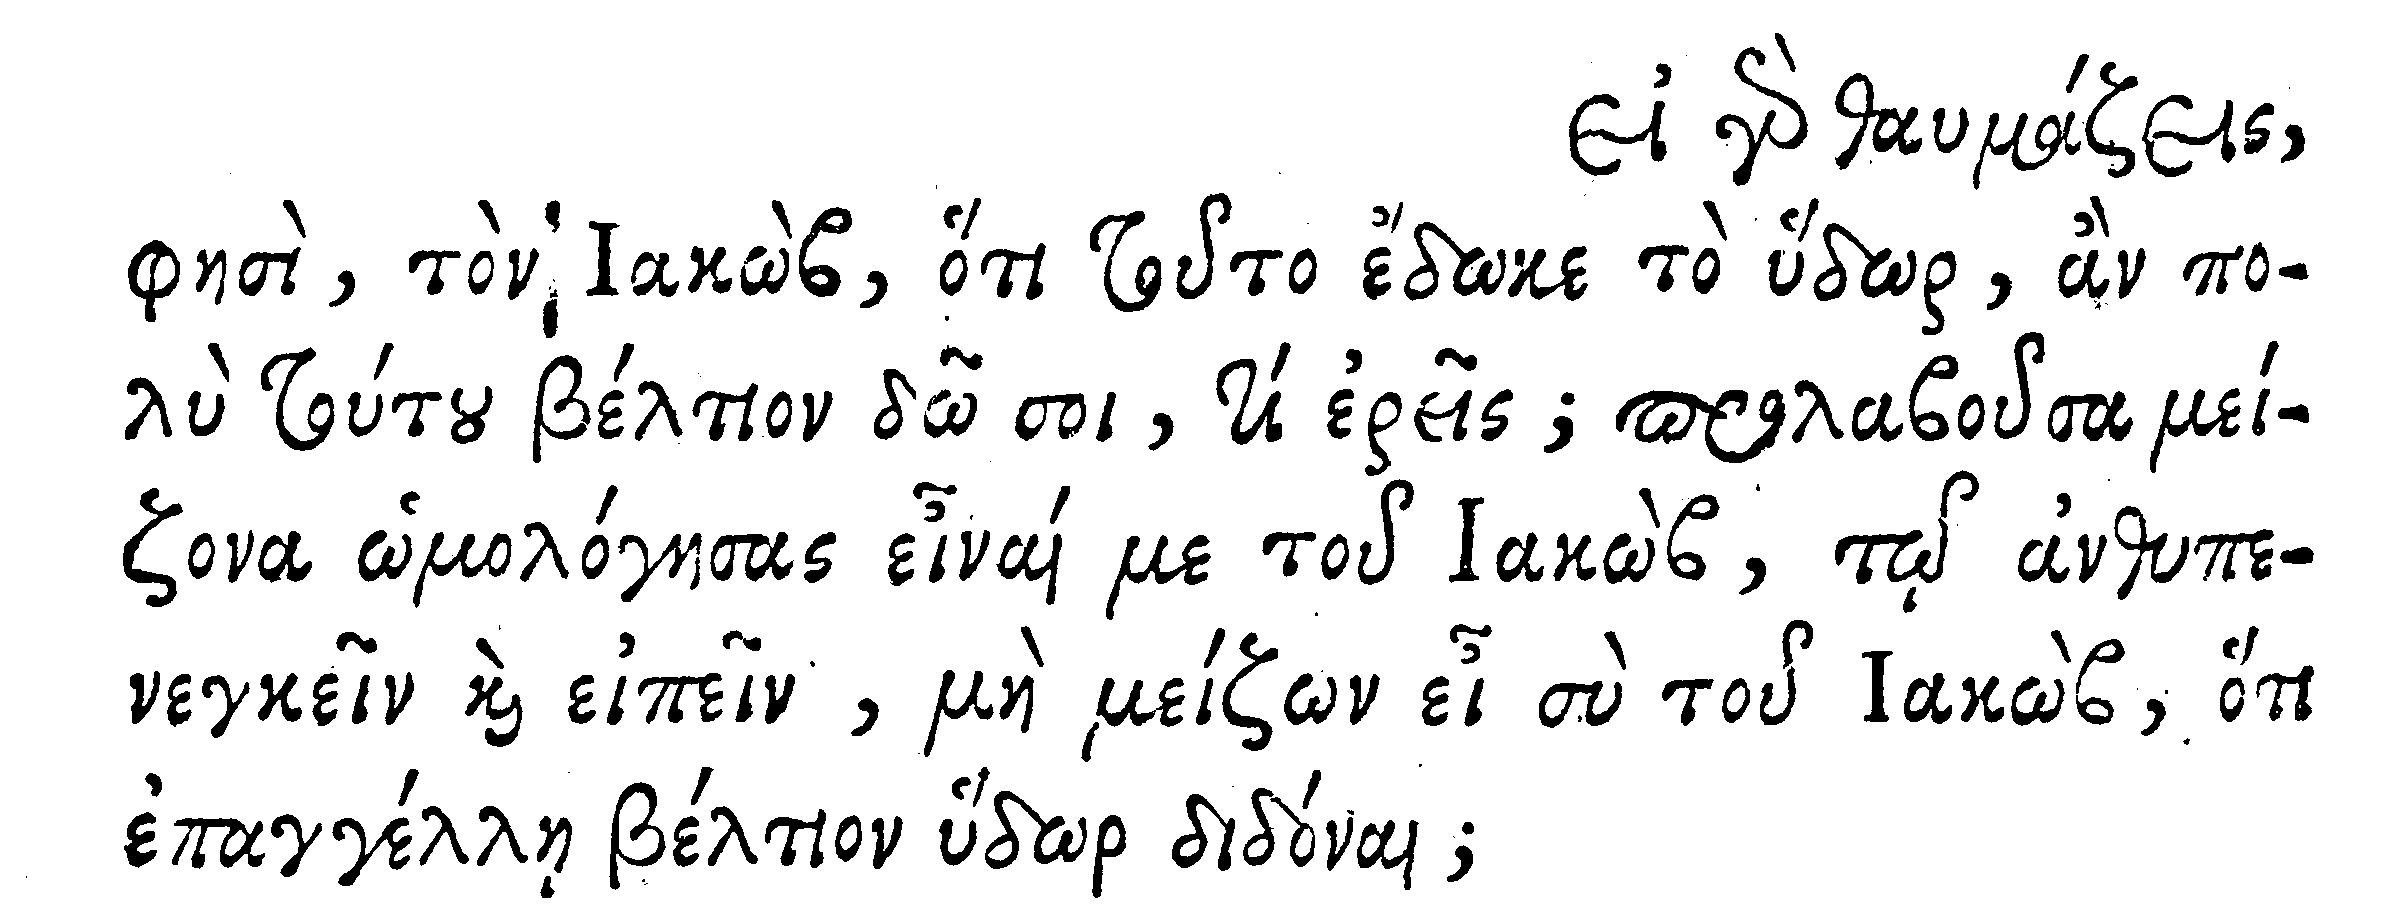 εἰ γὰρ θαυμάζεις,
φησὶ, τὸν Ἰακὼβ, ὅτι τοῦτο ἔδωκε τὸ ὕδωρ, ἂν πο-
λὺ τούτου βέλτιον δῶ σοι, τί ἐρεῖς; προλαβοῦσα μεί-
ζονα ὡμολόγησας εἶναί με τοῦ Ἰακὼβ, τῷ ἀνθυπε-
νεγκεῖν καὶ εἰπεῖν, μὴ μείζων εἶ σὺ τοῦ Ἰακὼβ, ὅτι
ἐπαγγέλλῃ βέλτιον ὕδωρ διδόναι;